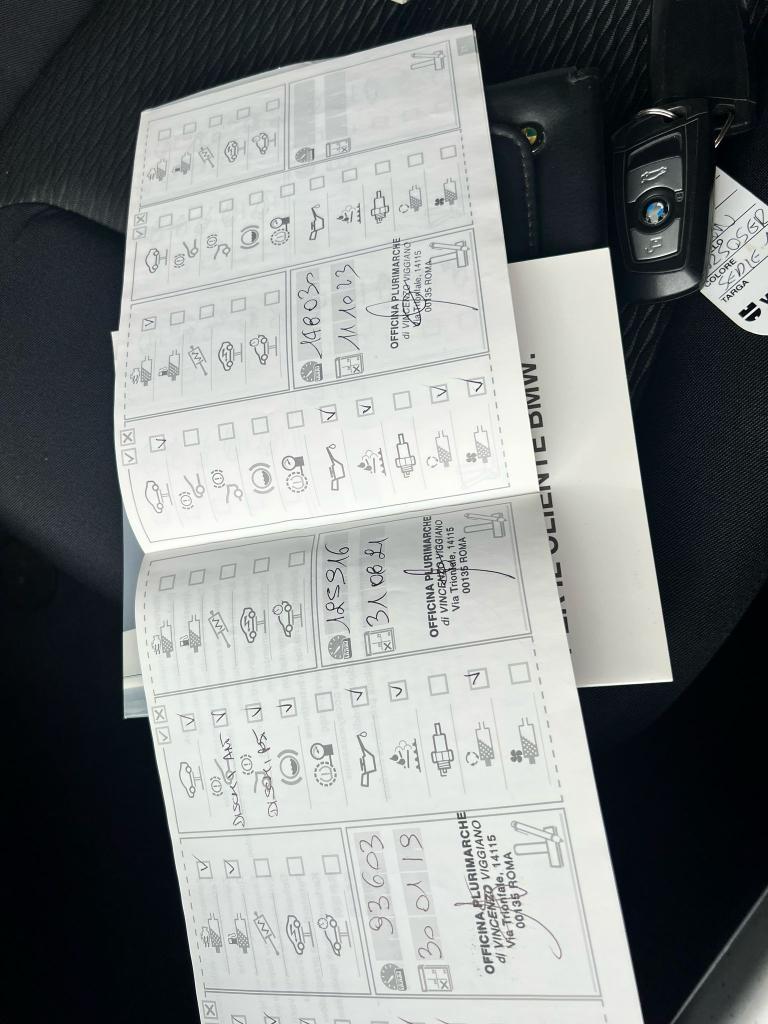 148030
11 10 23
OFFICINA PLURIMARCHE
di VINCENZO VIGGIANO
Via Trionfale, 14115
00135 ROMA
125916
31 08 21
OFFICINA PLURIMARCHE
di VINCENZO VIGGIANO
Via Trionfale, 14115
00135 ROMA
DISCHI ANT
DISCHI
93603
30 01 19
OFFICINA PLURIMARCHE
di VINCENZO VIGGIANO
Via Trionfale, 14115
00135 ROMA
CLIENTE BMW.
COLORE
TARGA